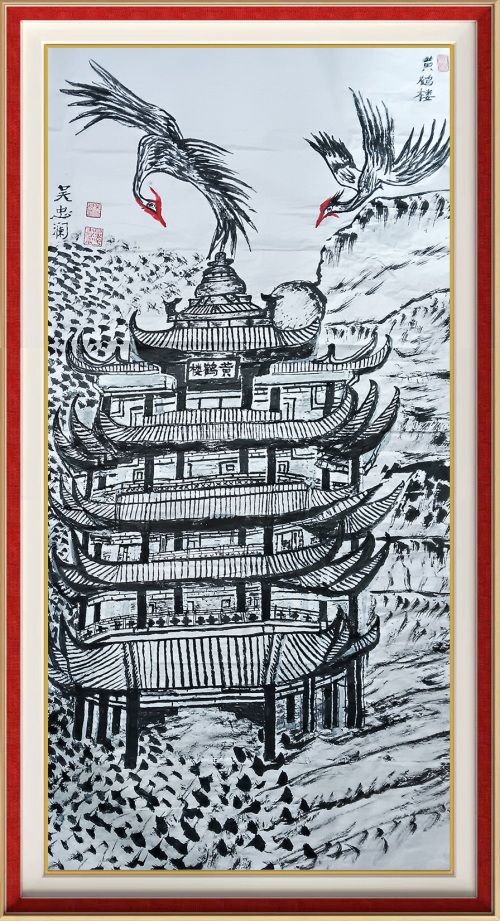 黄鹤楼
吴忠澜
黄鹤楼